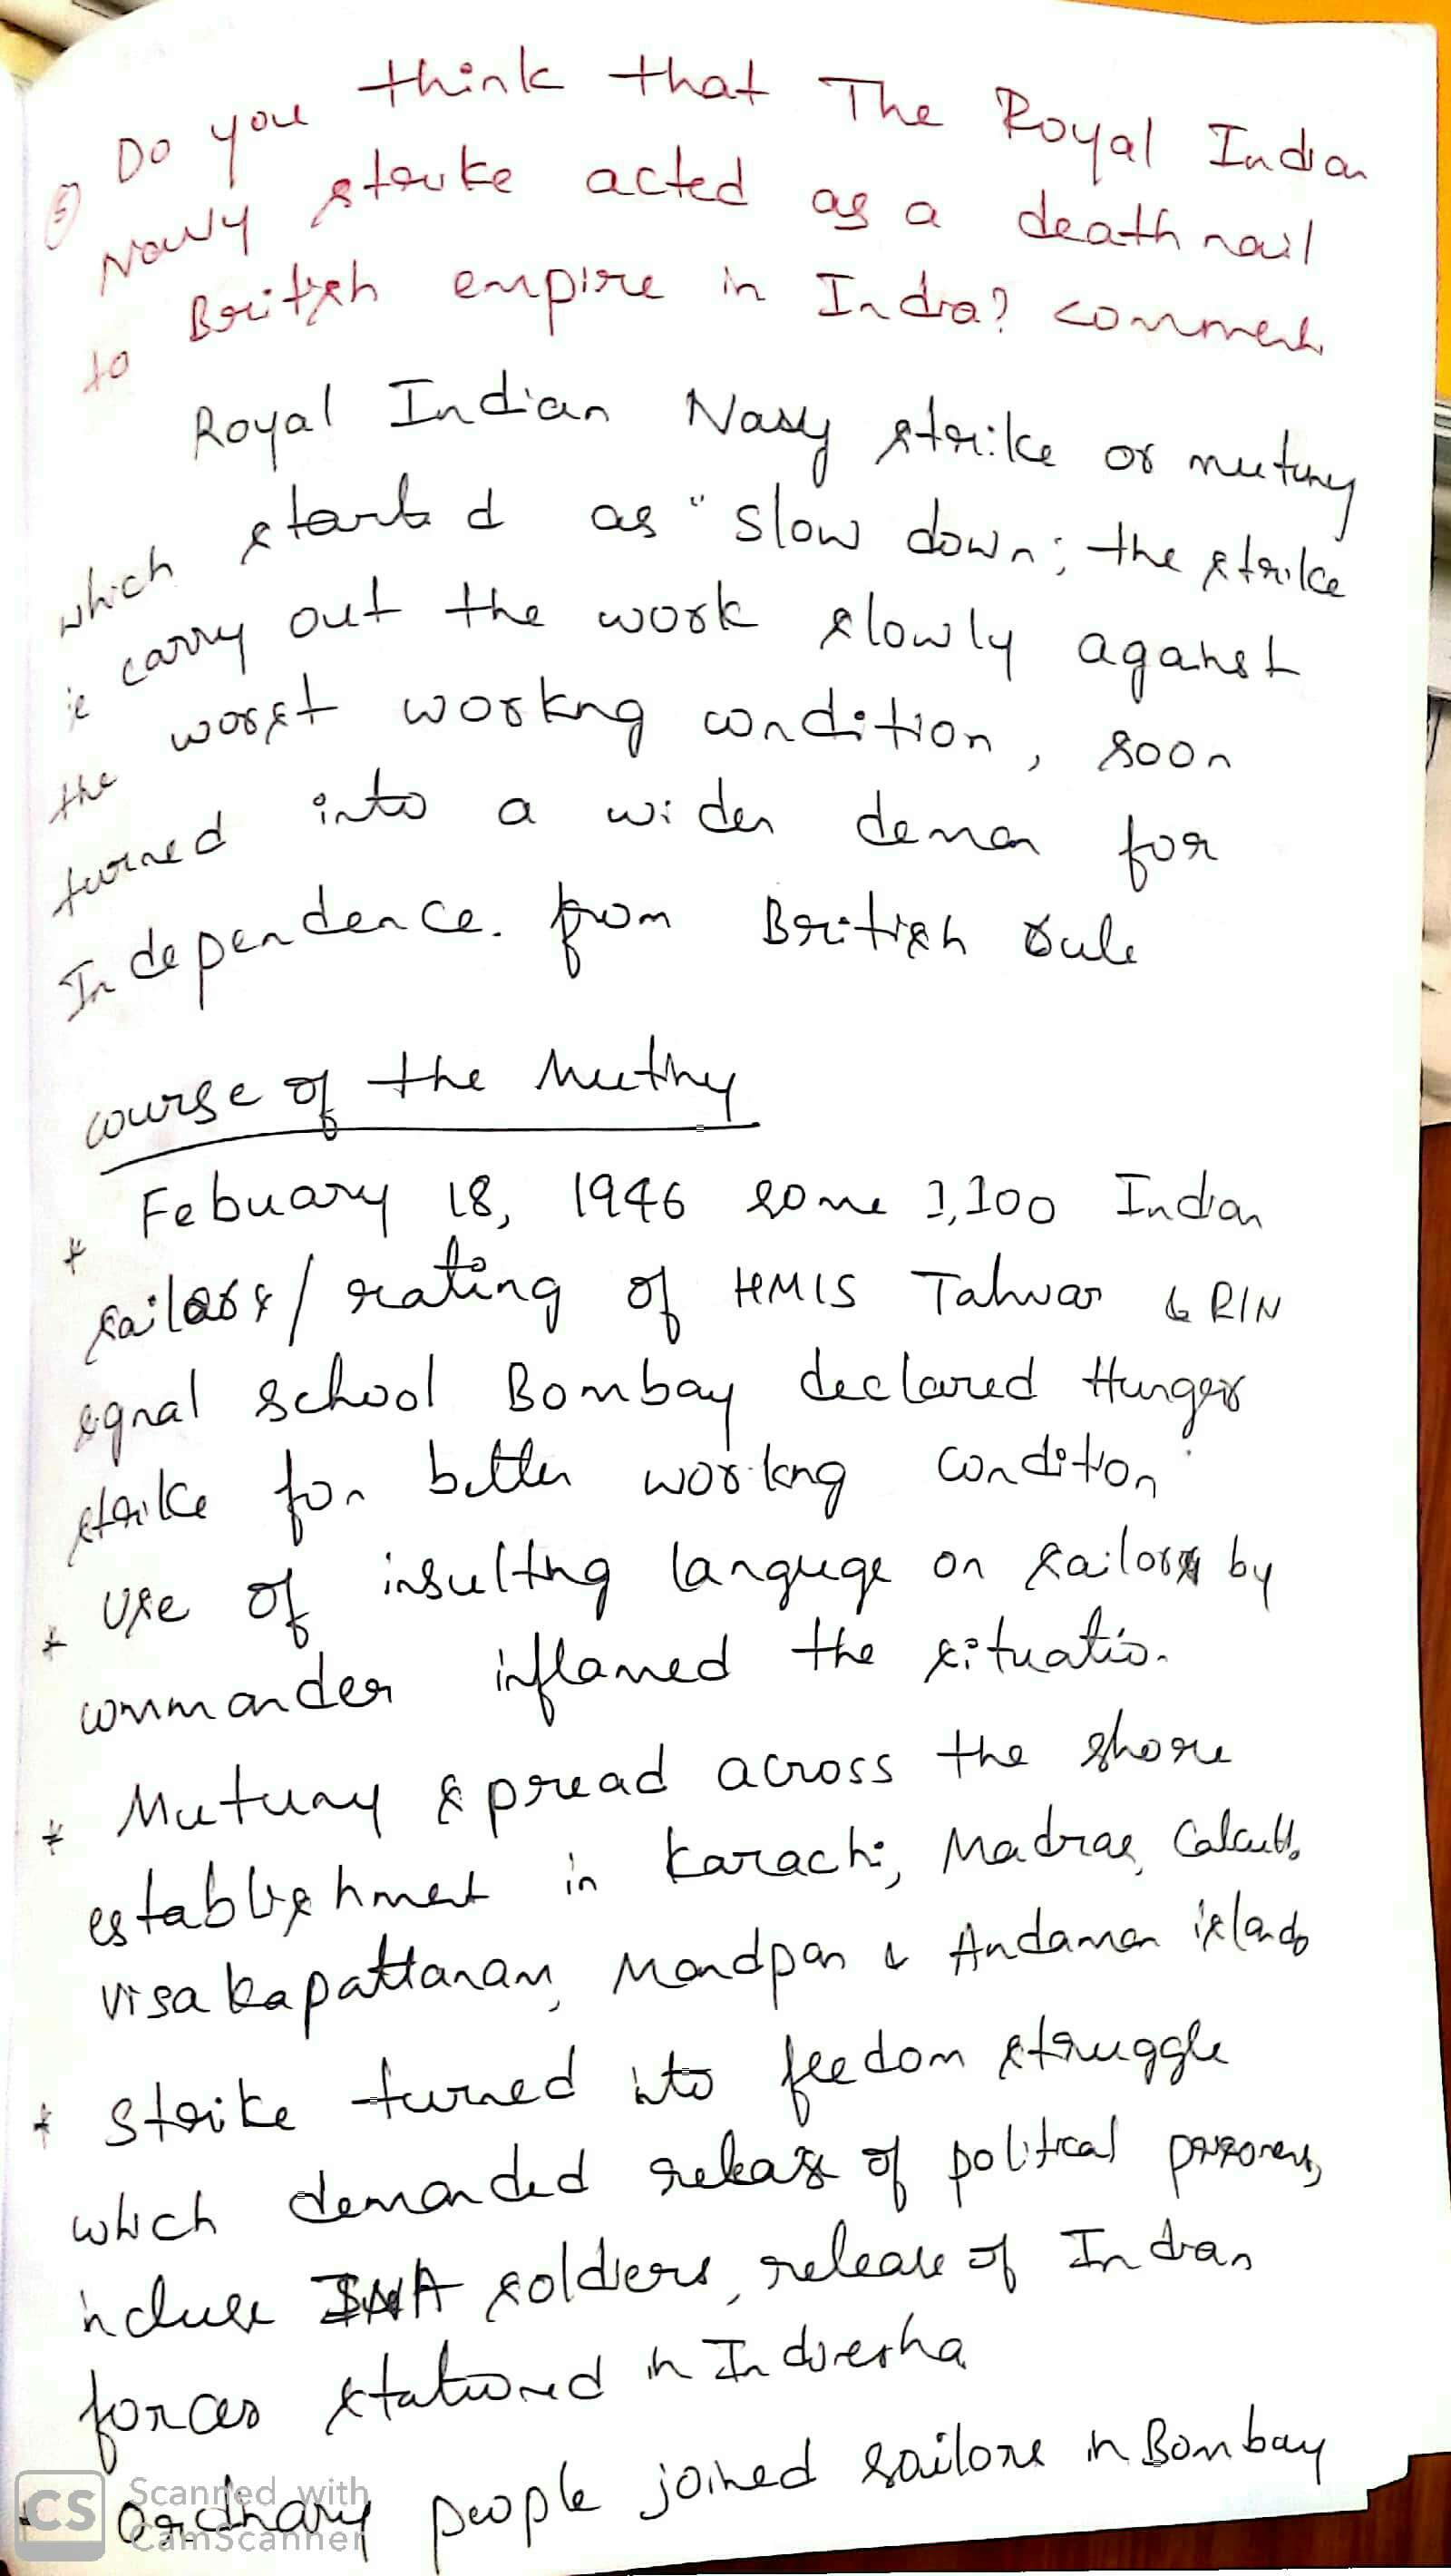 5) Do you think that The Royal Indian
Navy strike acted as a death nail
to British empire in India? comment
Royal Indian Navy strike or mutuny
which started as "slow down; the strike
ie carry out the work slowly against
the worst working condition, soon
turned into a wider deman for
Independence. from British rule
course of the Mutiny
* Febuary 18, 1946 some 1,100 Indian
sailors/rating of HMIS Talwar & RIN
signal school Bombay declared Hunger
strike for better working condition
* Use of insulting languge on sailors by
commander inflamed the situation
* Mutuny spread across the shore
establishment in Karachi, Madras, Calcutta
visakapattanam, Mandpan & Andaman islands
* Strike turned into feedom struggle
which demanded release of political prisoners,
include INA soldiers, release of Indian
forces stationed in Indonesha
* ordinary people joined sailors in Bombay
CS Scanned with
CamScanner